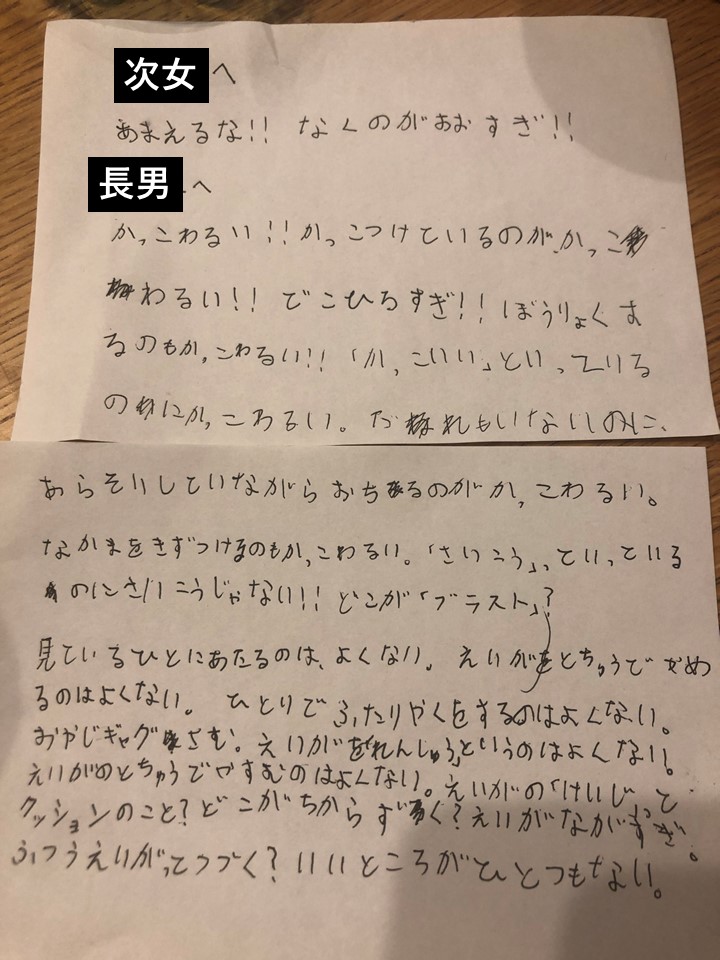 次女へ
あまえるな!! なくのがおおすぎ!!
長男へ
かっこわるい!!かっこつけているのがかっこ
わるい!! でこひろすぎ!! ぼうりょくす
るのもかっこわるい!!「かっこいい」といっている
のにかっこわるい。だれもいないのに、
あらそいしていながらおちるのがかっこわるい。
なかまをきずつけるのもかっこわるい。「さいこう」っていっている
のにさいこうじゃない!! どこが「ブラスト」?
見ているひとにあたるのは、よくない。 えいがをとちゅうでやめ
るのはよくない。 ひとりでふたりやくをするのはよくない。
おやじギャグさむ。えいがを「れんしゅう」というのはよくない。
えいがのとちゅうでやすむのはよくない。えいがの「けいじ
クッションのこと?どこがちから く?えいがながすぎ。
ふつうえいがってつづく?いいところがひとつもない。